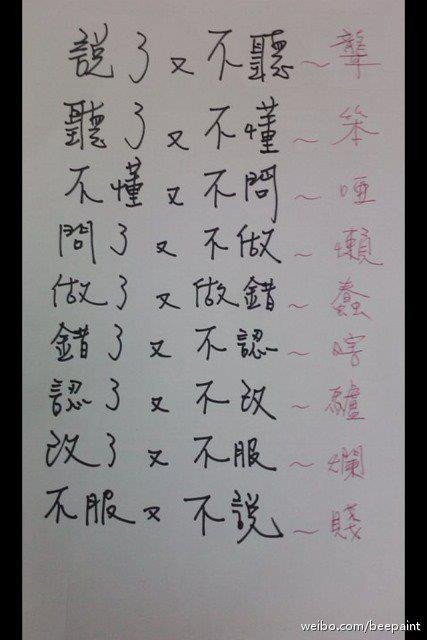 說了又不聽~聾
聽了又不懂~笨
不懂又不問~啞
問了又不做~懶
做了又做錯~蠢
錯了又不認~瞎
認了又不改~驢
改了又不服~爛
不服又不說~賤
weibo.com/beepaint